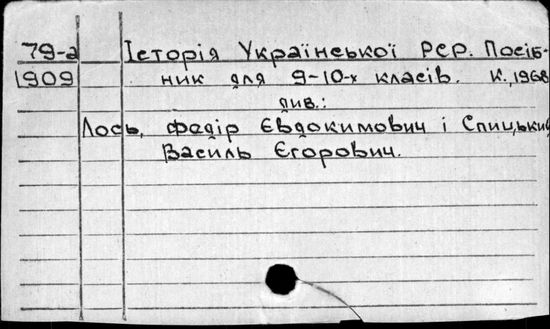 79-а Історія Української РСР. Посіб-
1909 ник для 9-10-х класів. К., 1968
див.:
Лось, Федір Євдокимович і Спицький
Василь Єгорович.